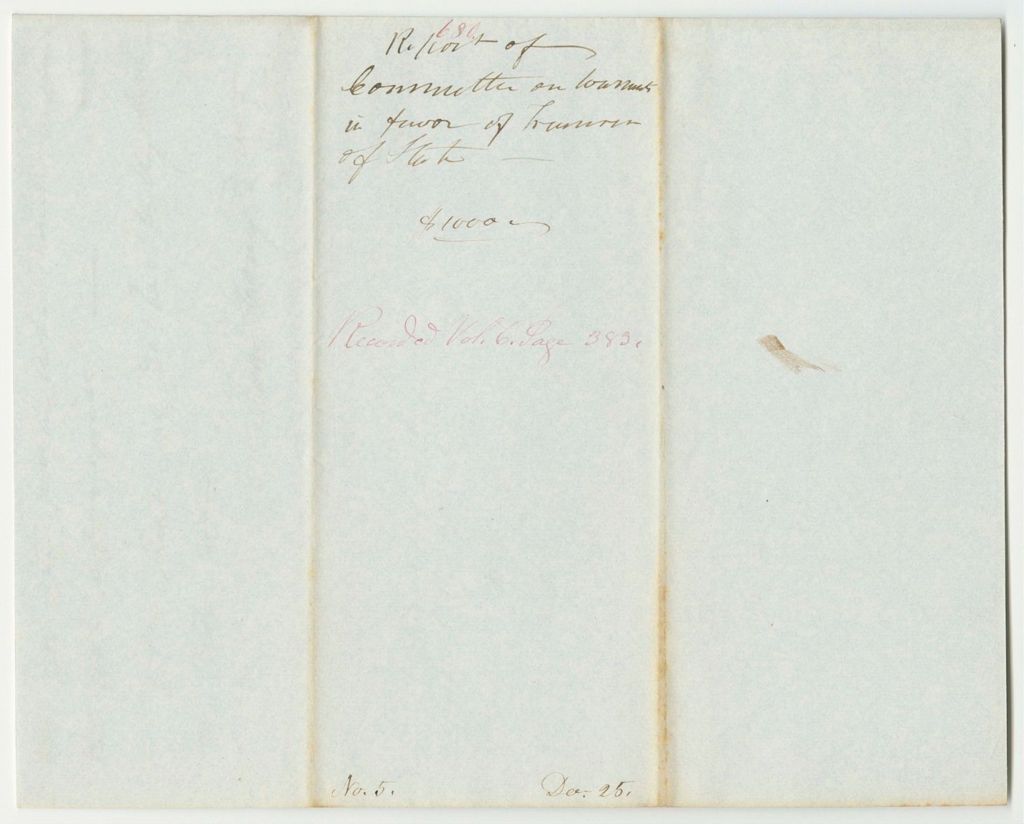 686
Report of
Committee on Warrants
in favor of Treasurer
of State —
$1000
Recorded Vol. 6. Page 383.
No. 5. Dec. 25.